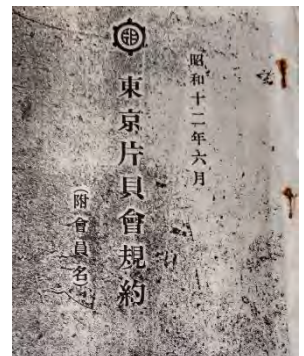 昭和十二年六月
東京片貝會規約
(附會員名)